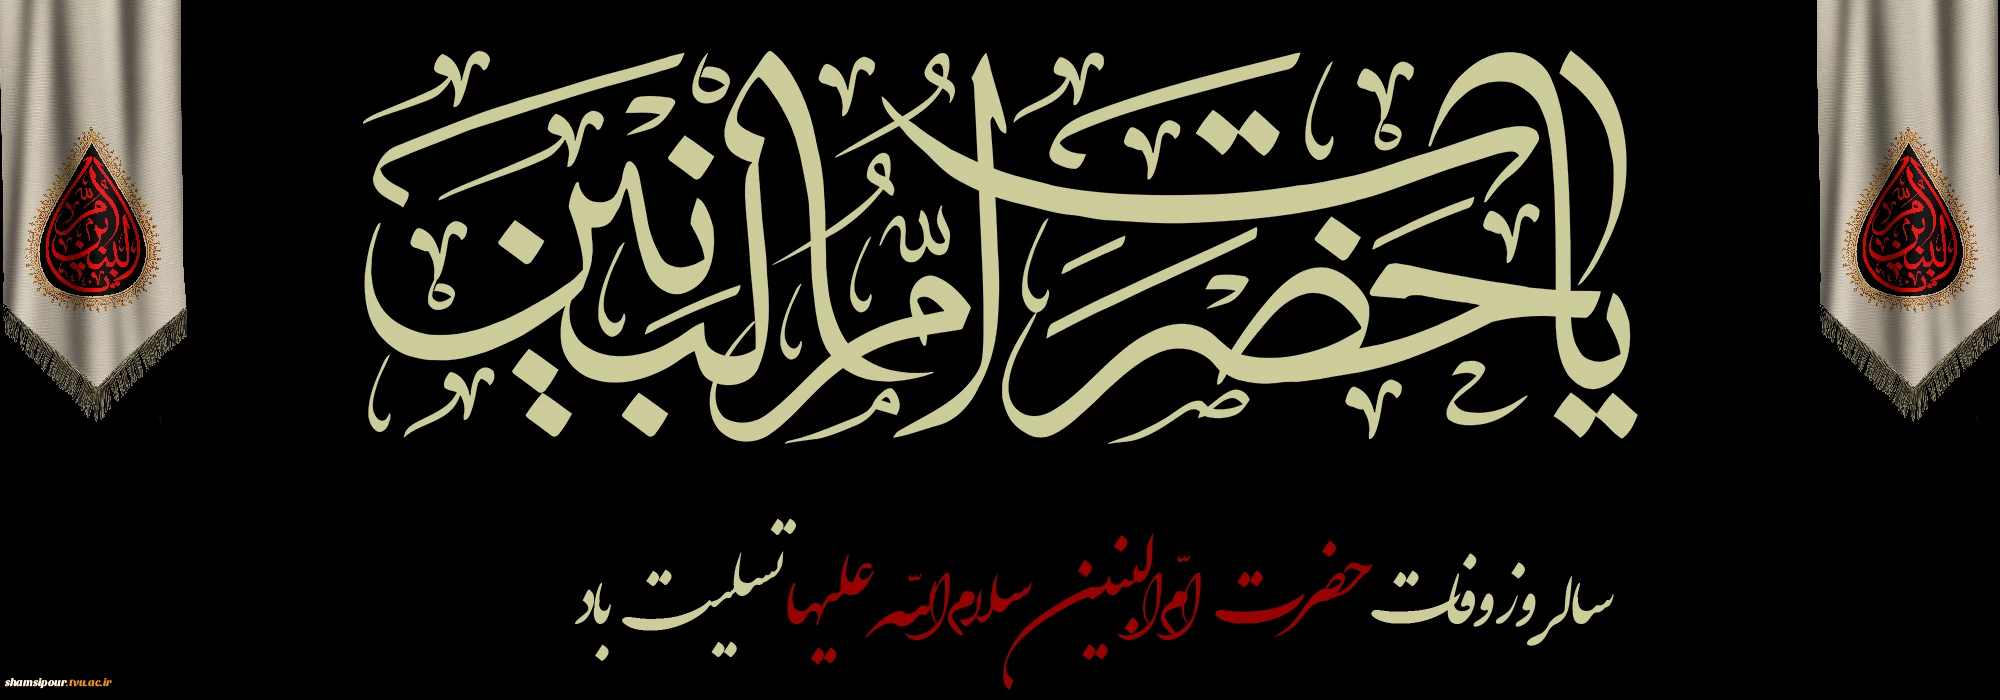 یا حضرت امّ البنین
امّ البنین
امّ البنین
سالروز وفات حضرت امّ البنین سلام الله علیها تسلیت باد
shamsipour.tvu.ac.ir